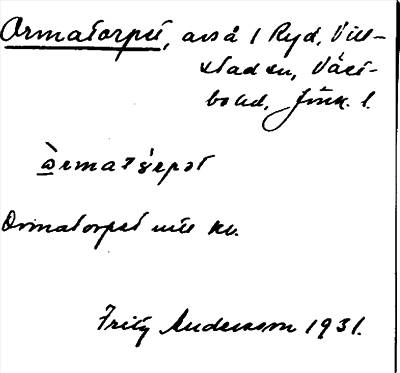 Ormatorpet, avs å 1 Ryd, Vill-
stad sn, Väst-
bo hd, Jönk. l.
òrmatǫ́rpət
Ormatorpet utt kv.
Fritz Andersson 1931.